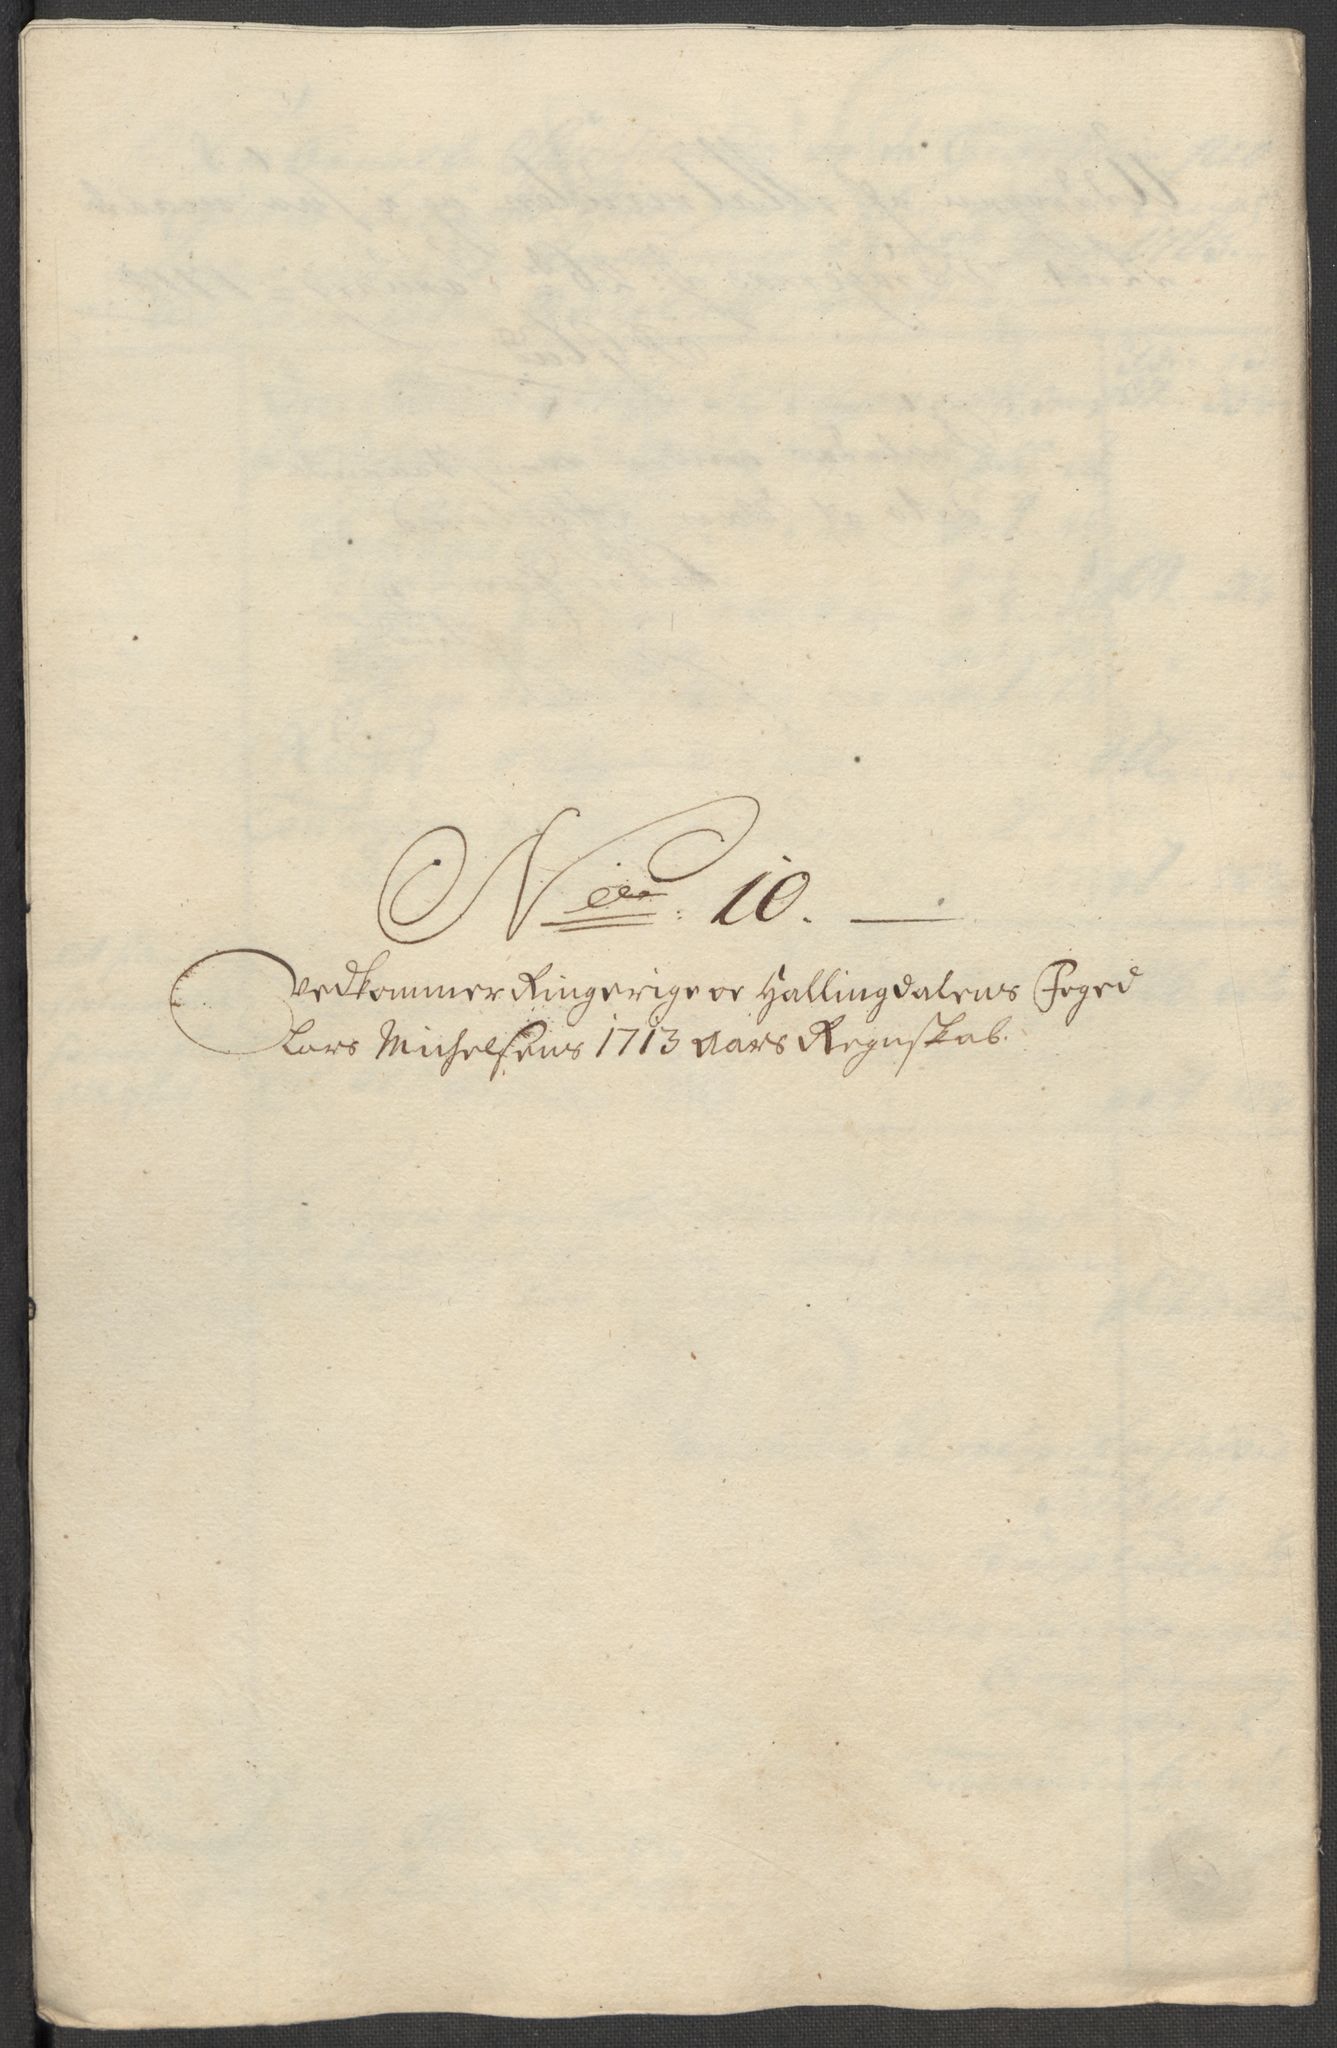 No: 10.
Vedkommer Ringerige oc Hallingdalens Foged
Lars Michelsens 1713 Aars Regnskab.